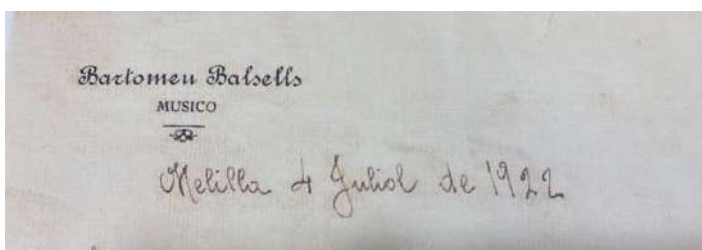 Bartomeu Balsells
MUSICO
Melilla 4 Juliol de 1922